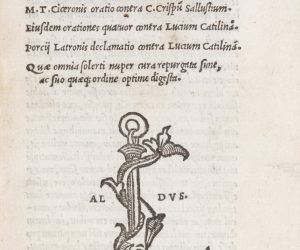 M. T. Ciceronis oratio contra C. Crispũ Sallustium.
Eiusdem orationes quatuor contra Lucium Catilinã.
Porcij Latronis declamatio contra Lucium Catilinã.
Quæ omnia solerti nuper cura repurgata sunt,
ac suo quæq; ordine optime digesta.
AL DVS.